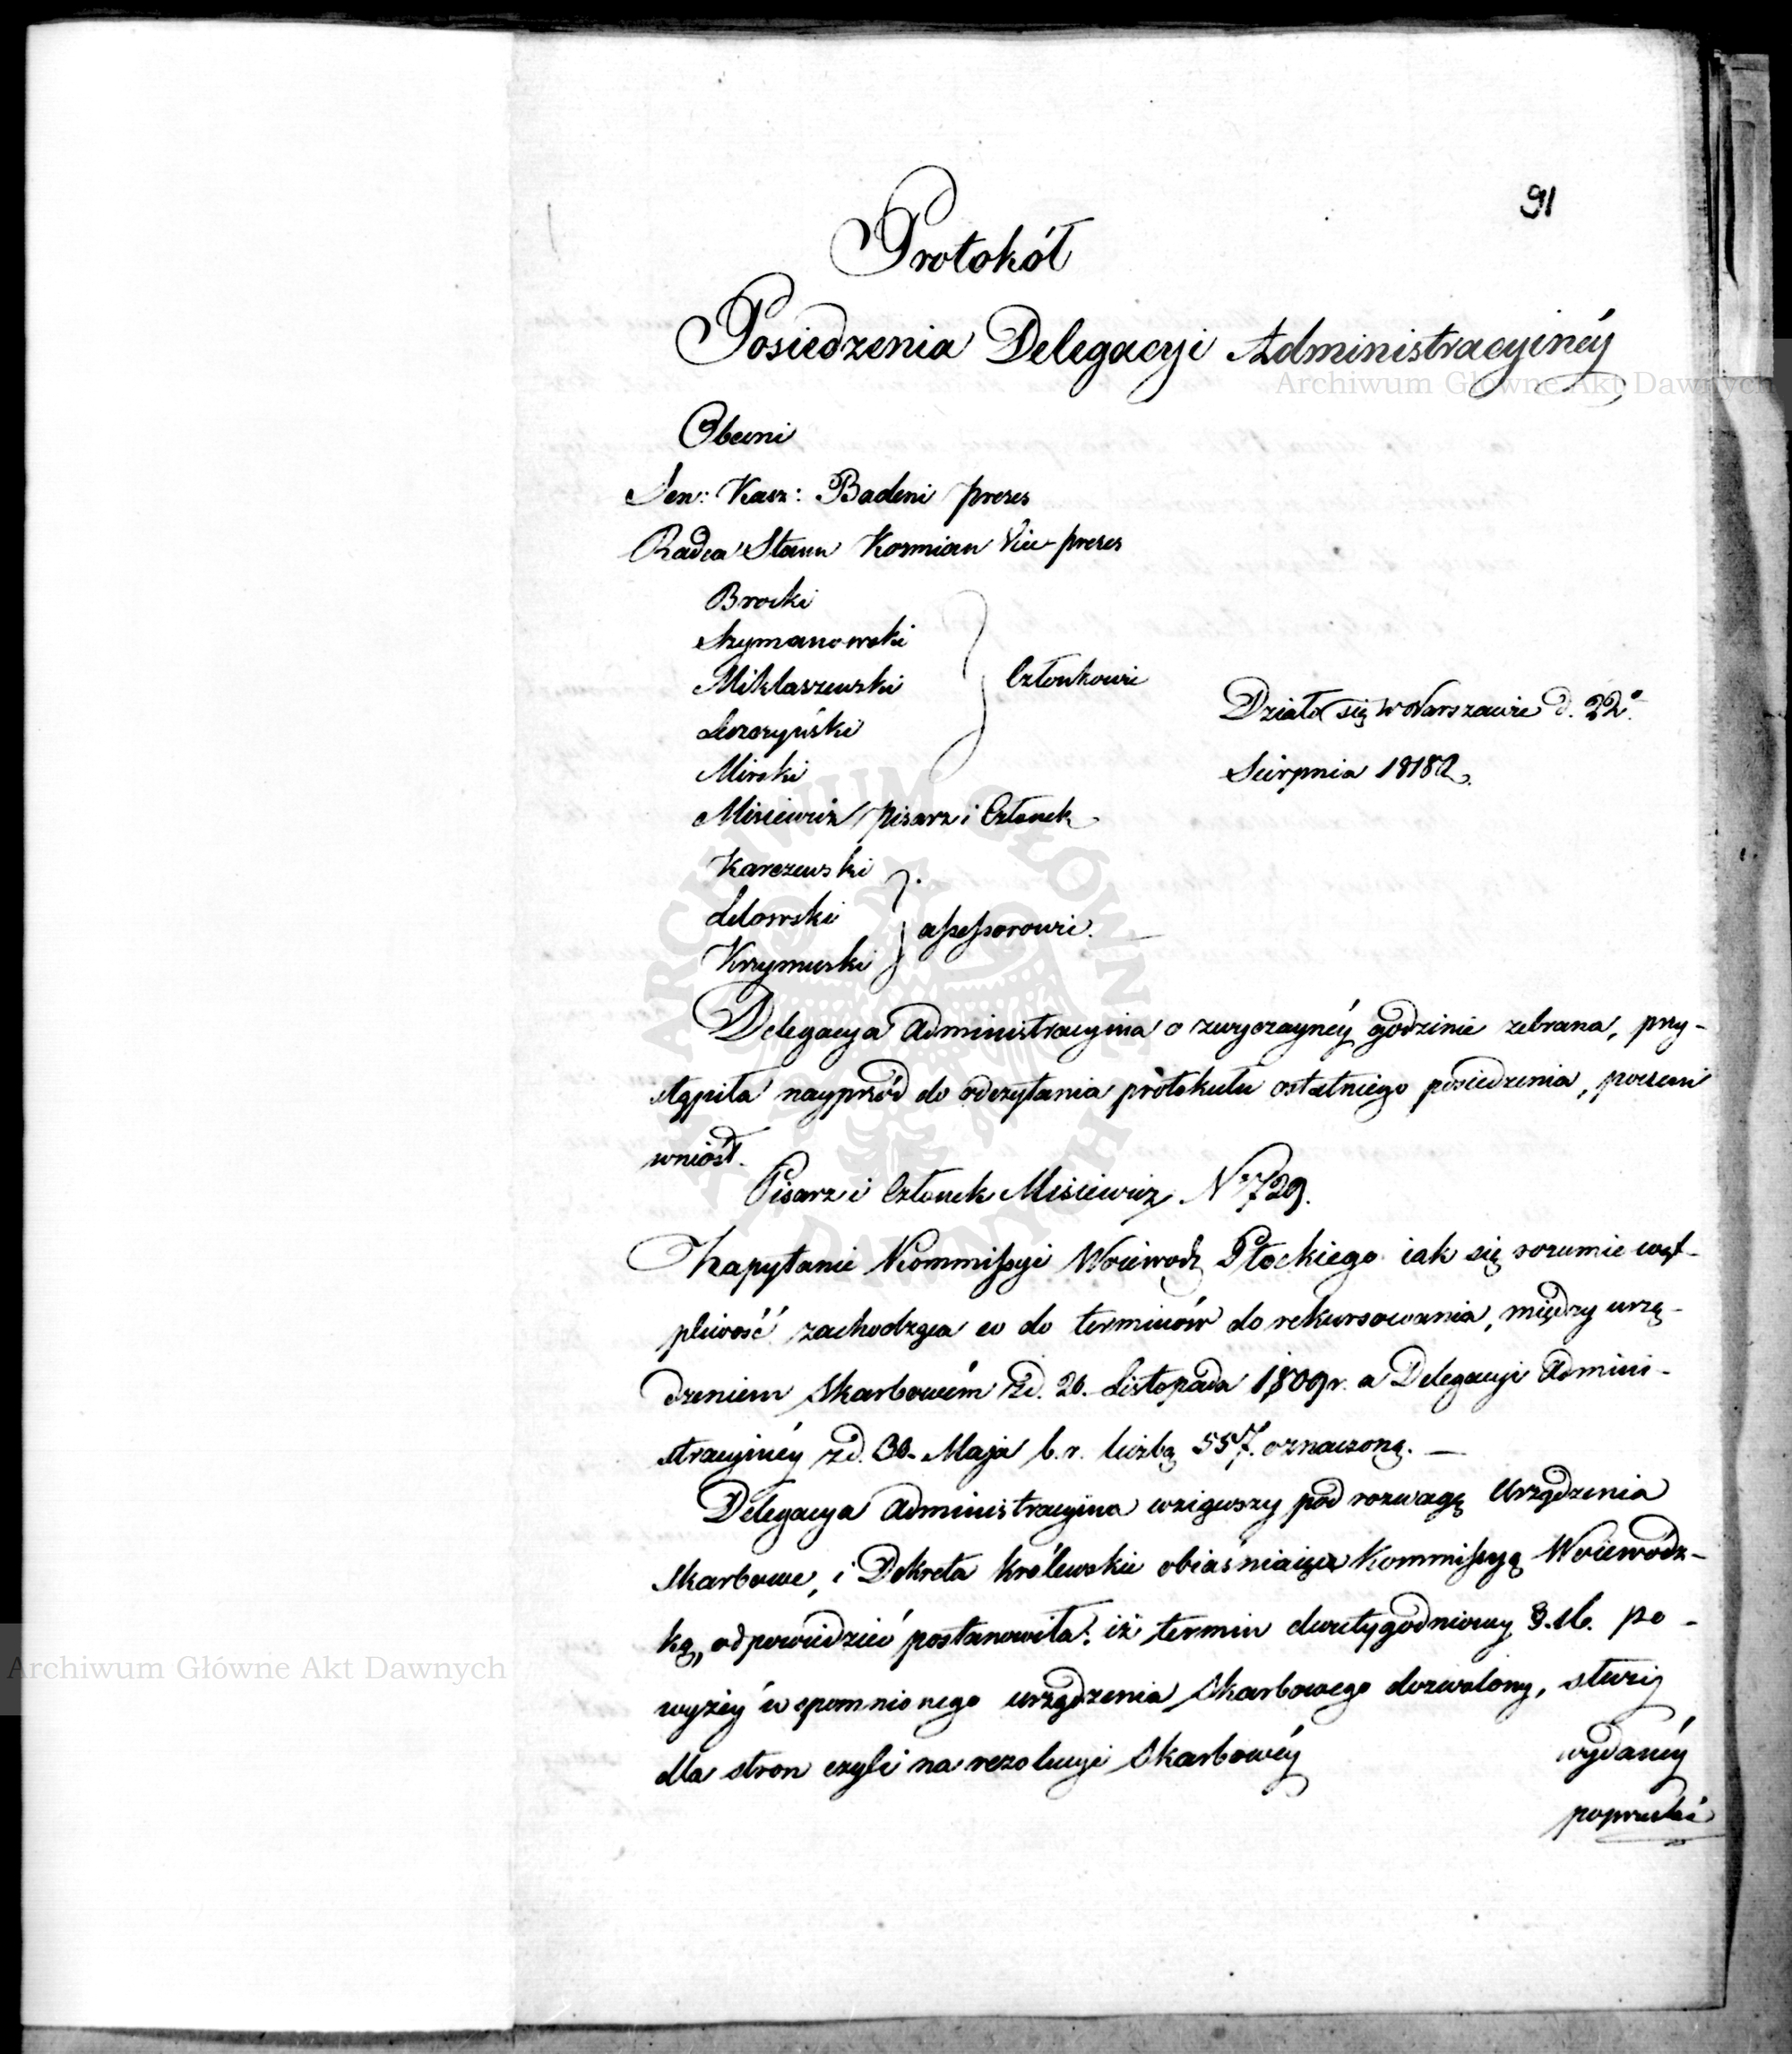 91
Protokół
Posiedzenia Delegacyi Administracyinéy
Archiwum Główne Akt Dawnych
Obecni
Sen: Kasz: Badeni prezes
Radca Stanu Kozmian Vice-prezes
Brocki
Szymanowski
Miklaszewski
Leszczyński
Mirski
Członkowie
Działo się w Warszawie d. 22º
Sierpnia 1818
Misiewicz pisarz i Członek
Karczewski
Lelowski
Krzymuski
assessorowie.
Delegacya Administracyina o zwyczaynéy godzinie zebrana, przy-
stąpiła nayprzód do odczytania protokułu ostatniego posiedzenia, poczem
wniósł.
Pisarz i Członek Misiewicz Nº 729.
Zapytanie Kommissyi Woiewodz Płockiego iak się rozumie wąt-
pliwość zachodząca co do terminów do rekursowania, między urzą-
dzeniem Skarbowém z d. 20. Listopada 1809 r. a Delegacyi Admini-
stracyinéy z d. 30. Maja b. r. liczbą 557. oznaczoną. —
Delegacya Administracyina wziąwszy pod rozwagę Urządzenia
Skarbowe, i Dekreta Królewskie obiaśniaiące Kommissyą Woiewódz-
ką, odpowiedzieć postanowiła: iż termin dwutygodniowy §. 16. po-
wyżéy wspomnionego urządzenia Skarbowego dozwolony, służy
dla stron czyli na rezolucyi Skarbowéy wydanéy
poprzestać
ARCHIWUM GŁÓWNE AKT DAWNYCH
Archiwum Główne Akt Dawnych